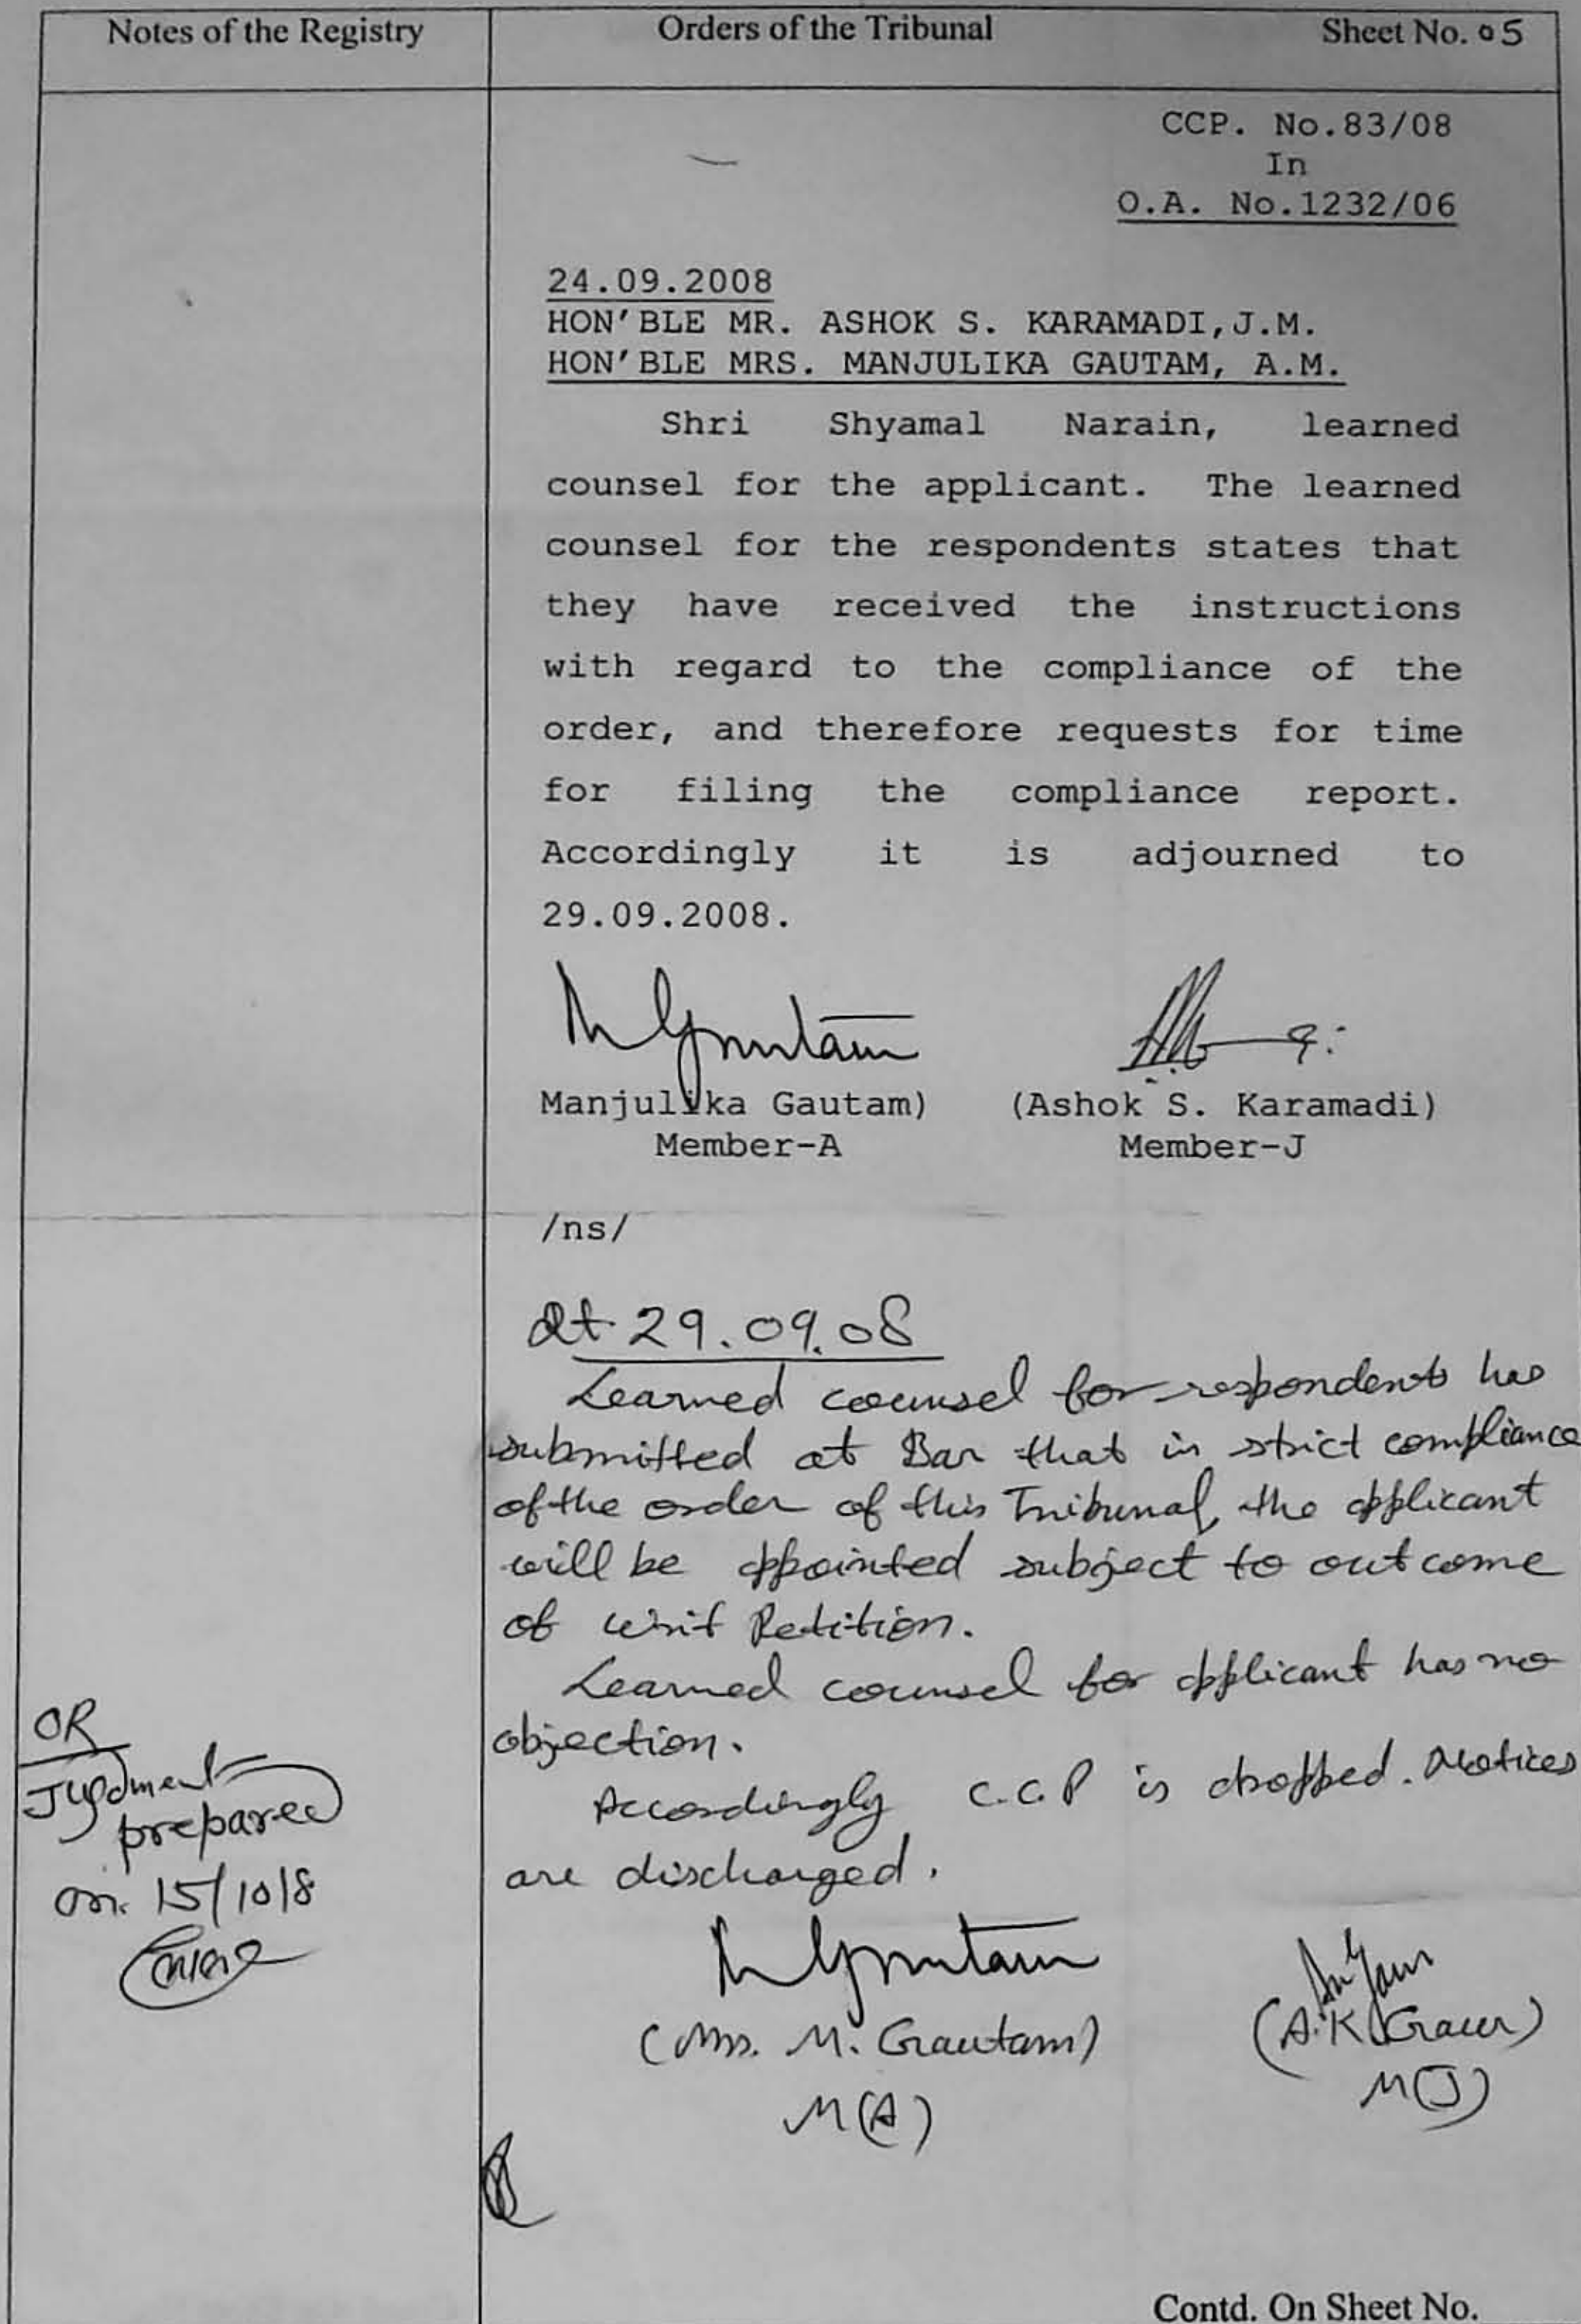 Notes of the Registry
Orders of the Tribunal
Sheet No. 05
CCP. No.83/08
In
O.A. No.1232/06
24.09.2008
HON'BLE MR. ASHOK S. KARAMADI,J.M.
HON'BLE MRS. MANJULIKA GAUTAM, A.M.
Shri Shyamal Narain, learned
counsel for the applicant. The learned
counsel for the respondents states that
they have received the instructions
with regard to the compliance of the
order, and therefore requests for time
for filing the compliance report.
Accordingly it is adjourned to
29.09.2008.
M Gautam
Manjulika Gautam) (Ashok S. Karamadi)
Member-A Member-J
/ns/
Dt 29.09.08
Learned counsel for respondents has
submitted at Bar that in strict compliance
of the order of this Tribunal, the applicant
will be appointed subject to outcome
of writ Petition.
Learned counsel for applicant has no
objection.
Accordingly C.C.P is dropped. Notices
are discharged.
M Gautam
(Mrs. M. Gautam) (A.K. Gaur)
M(A) M(J)
OR
Judment
prepared
on. 15/10/8
Contd. On Sheet No.